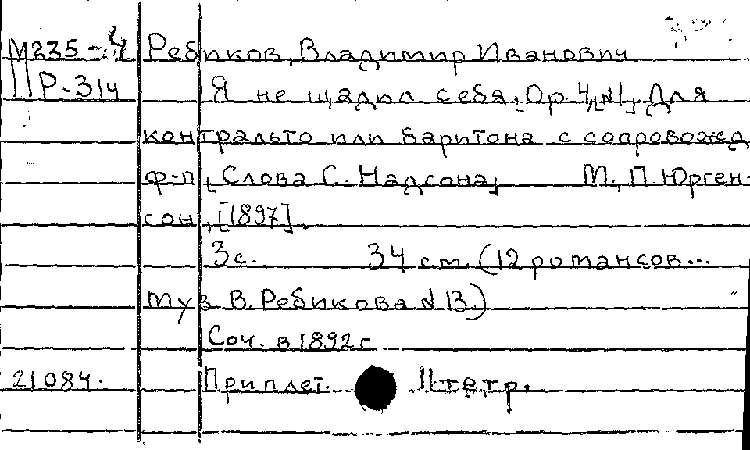 М235-4 Ребиков, Владимир Иванович
Р-314 Я не щадил себя, Op. 4, №1. Для
контральто или баритона с сопровожд
ф-п, Слова С. Надсона, М., П. Юрген-
сон, [1897].
3с. 34 см. (12 романсов...
муз В. Ребикова № 13.)
Соч. в 1892 г
21084. Приплет. 11 тетр.